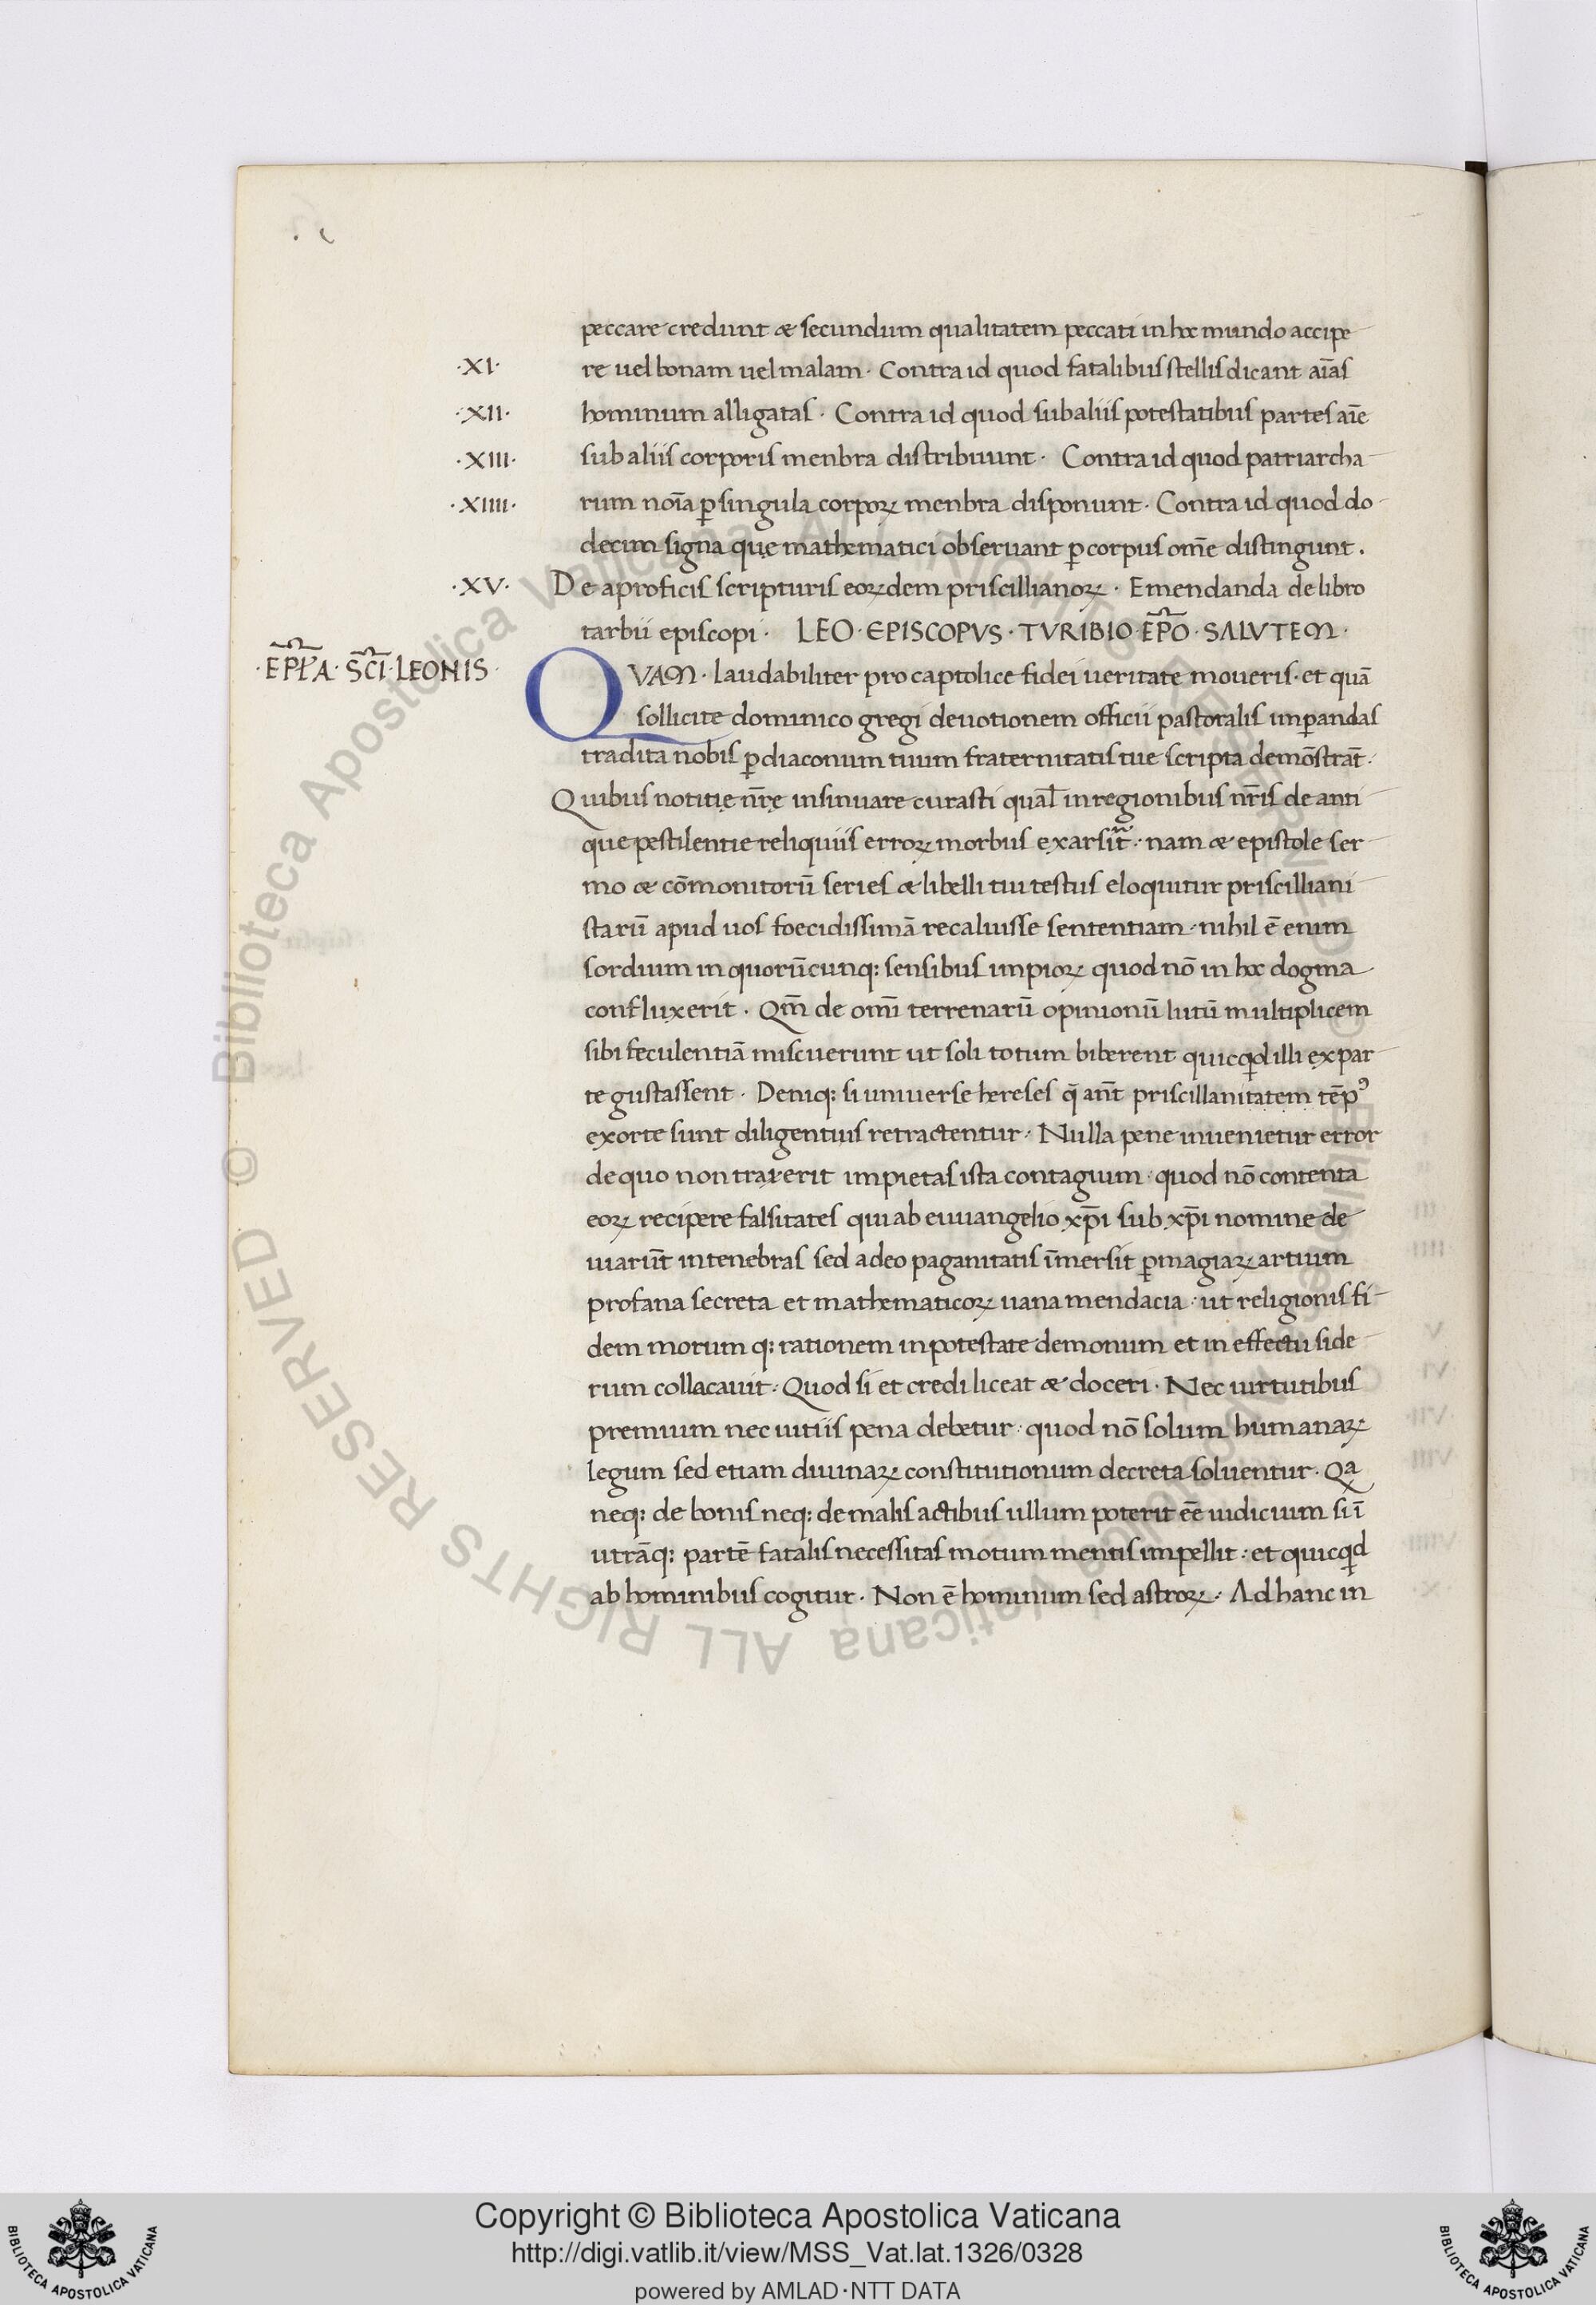 peccare credunt & secundum qualitatem peccati in hoc mundo accipe
·XI· re uel bonam uel malam · Contra id quod fatalibus stellis dicant aīas
·XII· hominum alligatas · Contra id quod sub aliis potestatibus partes aīe
·XIII· sub aliis corporis menbra distribuunt · Contra id quod patriarcha
·XIIII· rum noīa ꝑ singula corpoꝝ menbra disponunt · Contra id quod do
decim signa quę mathematici obseruant ꝑ corpus om̄e distingunt .
·XV· De aproficis scripturis eoꝝdem priscillianoꝝ · Emendanda de libro
tarbii episcopi · LEO · EPISCOPVS · TVRIBIO · EP̄O · SALVTEM ·
·EPL̄A · SC̄I · LEONIS ·
QVAM · laudabiliter pro captolice fidei ueritate moueris · et quā
sollicite dominico gregi deuotionem officii pastoralis imꝑandas
tradita nobis ꝑ diaconum tuum fraternitatis tue scripta demōstrāt ·
Quibus notitię n̄rę insinuare curasti qual̄ in regionibus nr̄is de anti
que pestilentie reliquiis erroꝝ morbus exarsit̄ · nam & epistole ser
mo & cōmonitorū series & libelli tui testus eloquitur priscilliani
starū apud uos foecidissimā recaluisse sententiam · nihil ē enim
sordium in quorūcunq: sensibus impioꝝ quod nō in hoc dogma
confluxerit · Qm̄ de omī terrenarū opinionū lutū multiplicem
sibi feculentiā miscuerunt ut soli totum biberent quicq̄d illi ex par
te gustassent · Deniq: si uniuerse hereses q̄ an̄t priscillanitatem tēpꝰ
exorte sunt diligentius retractentur · Nulla pene inuenietur error
de quo non traxerit impietas ista contagium · quod nō contenta
eoꝝ recipere falsitates qui ab euuangelio xp̄i sub xp̄i nomine de
uiarūt in tenebras sed adeo paganitatis īmersit ꝑ magiaꝝ artium
profana secreta et mathematicoꝝ uana mendacia · ut religionis fi
dem morum q: rationem in potestate demonum et in effectu side
rum collacauit · Quod si et credi liceat & doceri · Nec uirtutibus
premium nec uitiis pena debetur · quod nō solum humanaꝝ
legum sed etiam diuinaꝝ constitutionum decreta soluentur · Qa
neq: de bonis neq: de malis actibus ullum poterit eē iudicium si ī
utrāq: partē fatalis necessitas motum mentis impellit · et quicq̄d
ab hominibus cogitur · Non ē hominum sed astroꝝ · Ad hanc in
Copyright © Biblioteca Apostolica Vaticana
http://digi.vatlib.it/view/MSS_Vat.lat.1326/0328
powered by AMLAD·NTT DATA